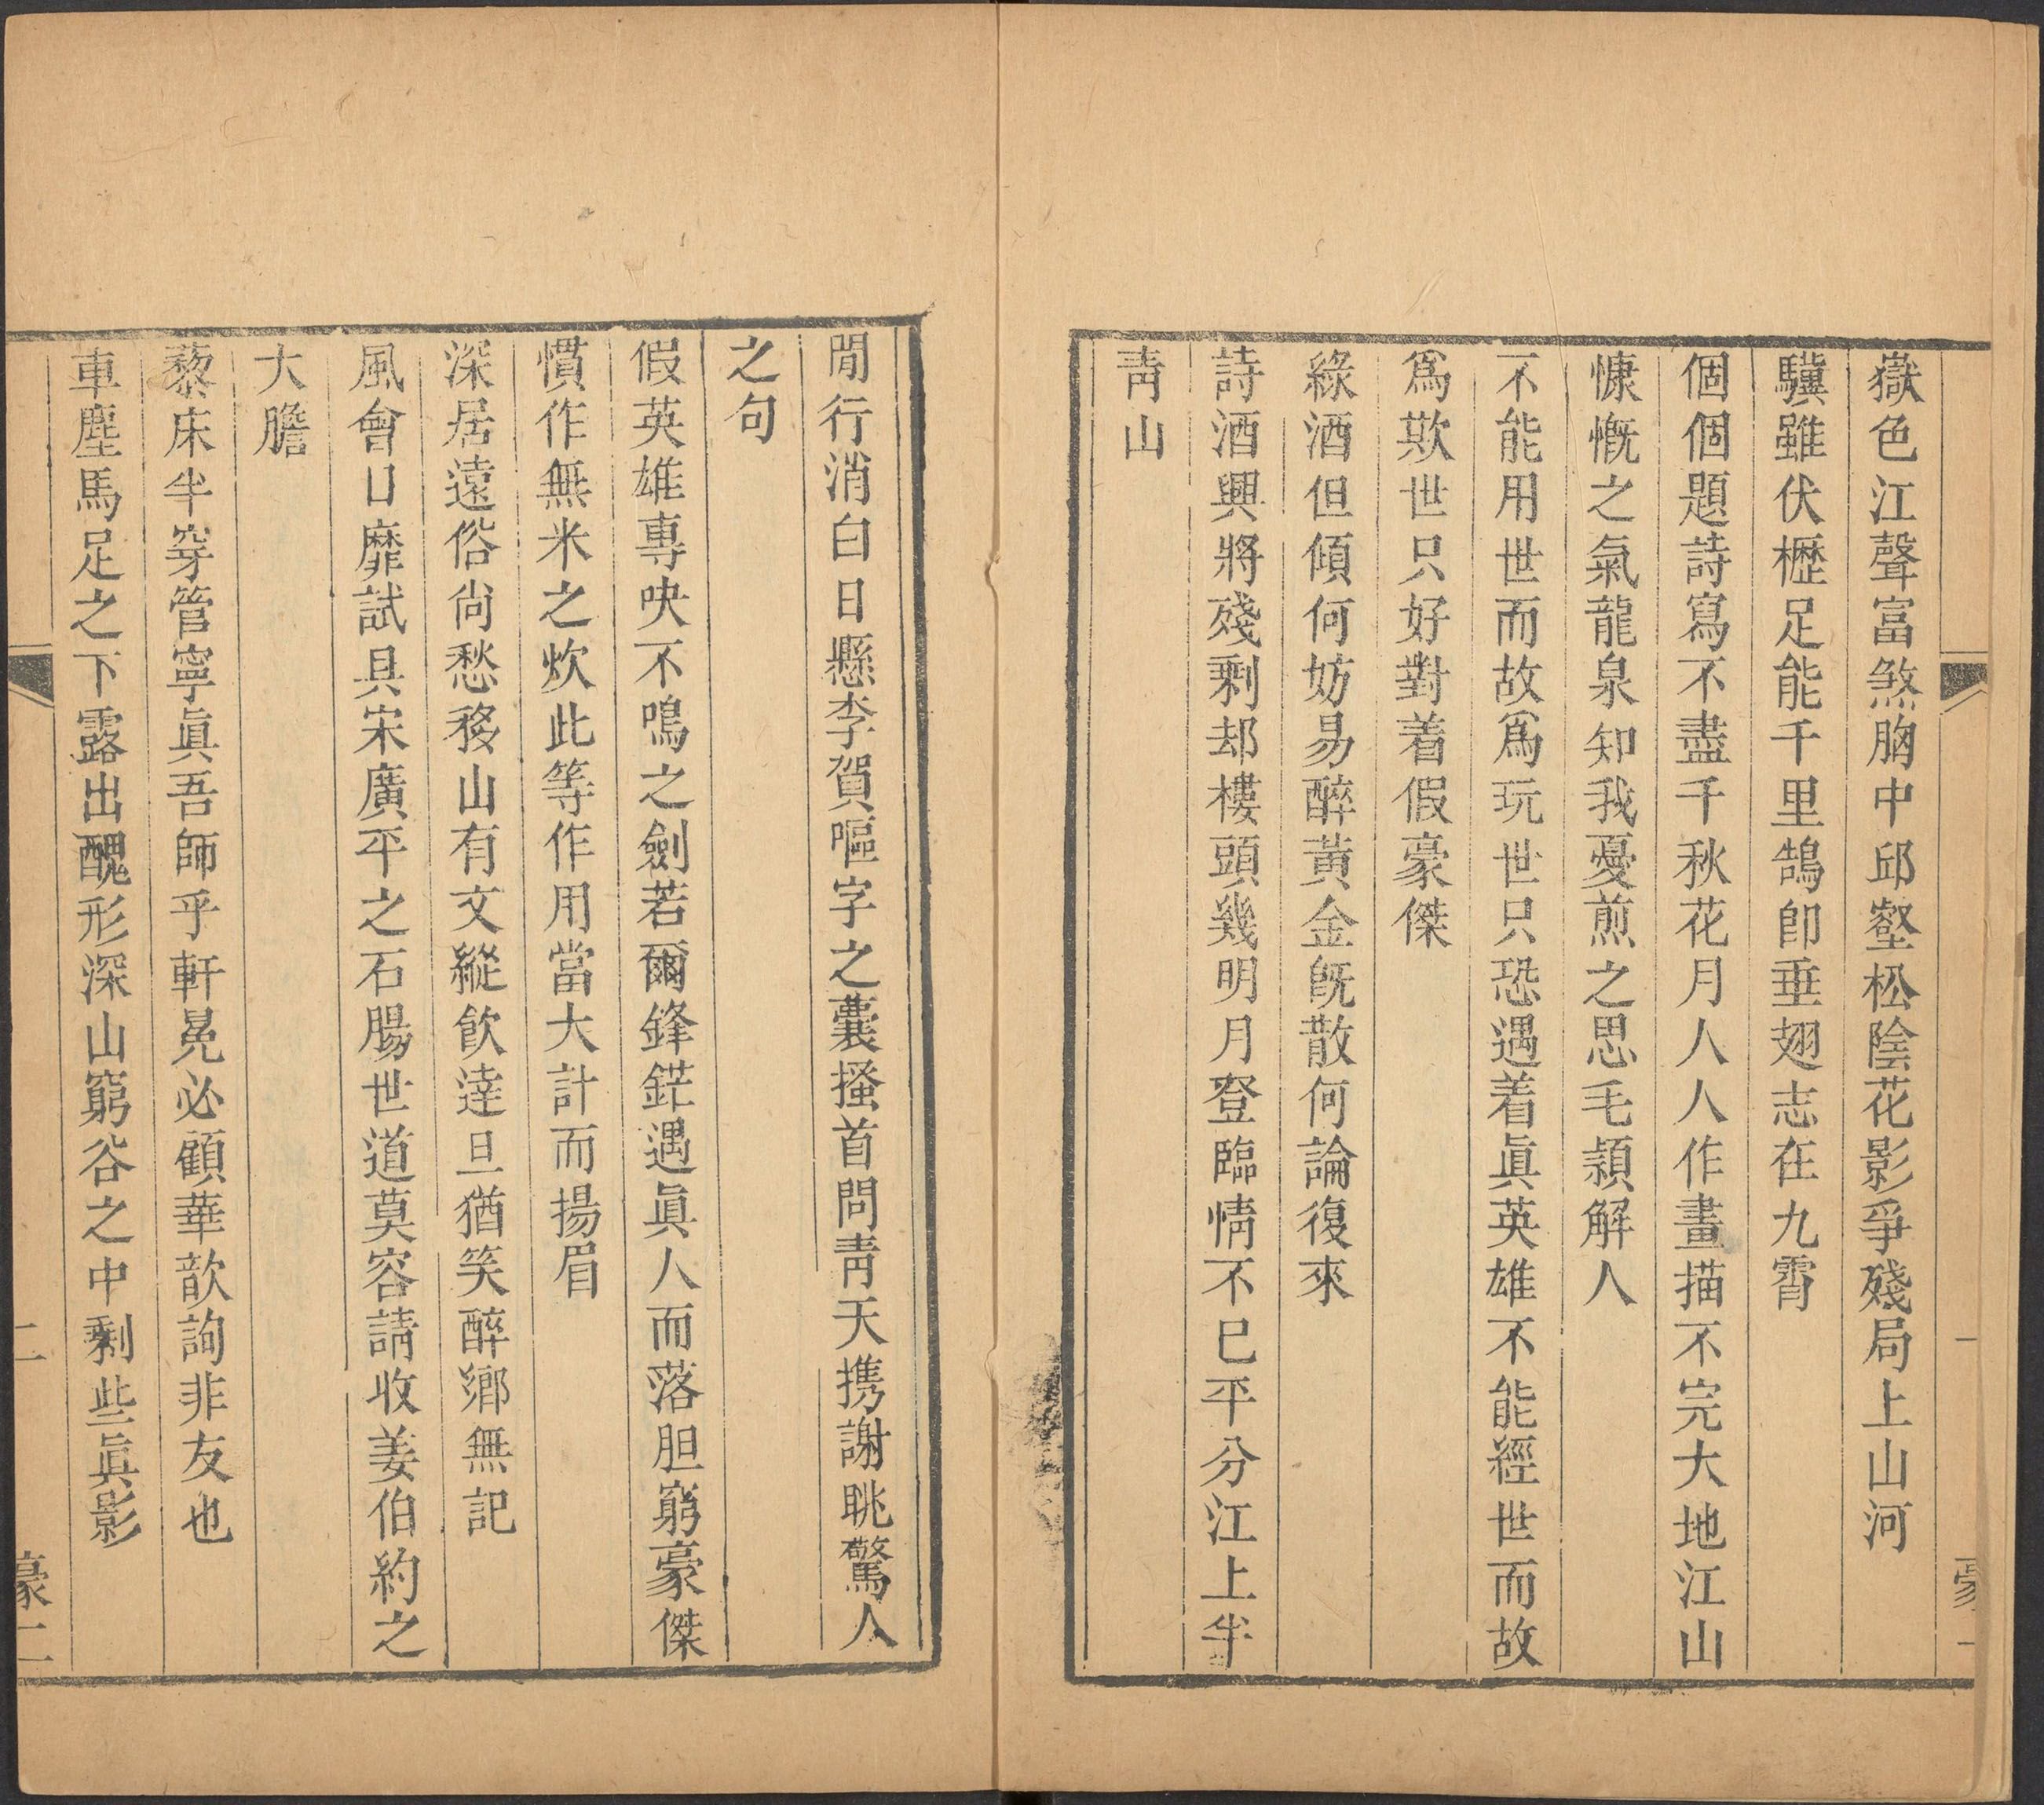 嶽色江聲富煞胸中邱壑松陰花影爭殘局上山河
驥雖伏櫪足能千里鵠卽垂翅志在九霄
個個題詩寫不盡千秋花月人人作畫描不完大地江山
慷慨之氣龍泉知我憂煎之思毛穎解人
不能用世而故爲玩世只恐遇着眞英雄不能經世而故
爲欺世只好對着假豪傑
綠酒但傾何妨易醉黃金旣散何論復來
詩酒興將殘剩却樓頭幾明月登臨情不已平分江上半
靑山
一
豪一
閒行消白日懸李賀嘔字之囊搔首問靑天携謝眺驚人
之句
假英雄專吷不鳴之劍若爾鋒鋩遇眞人而落胆窮豪傑
慣作無米之炊此等作用當大計而揚眉
深居遠俗尙愁移山有文縱飮達旦猶笑醉鄕無記
風會日靡試具宋廣平之石腸世道莫容請收姜伯約之
大膽
藜床半穿管寧眞吾師乎軒冕必顧華歆詢非友也
車塵馬足之下露出醜形深山窮谷之中剩些眞影
二
豪二